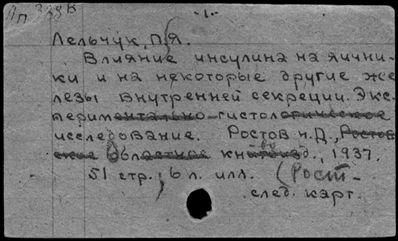 -1-
Лельчук, П.Я.
Влияние инсулина на яични-
ки и на некоторые другие же
лезы внутренней секреции. Экс-
периментально-гистологическое
исследование. Ростов н.Д., Ростов
ское областное книгоизд., 1937.
51 стр.; 6 л. илл. (Рост-
след. карт.